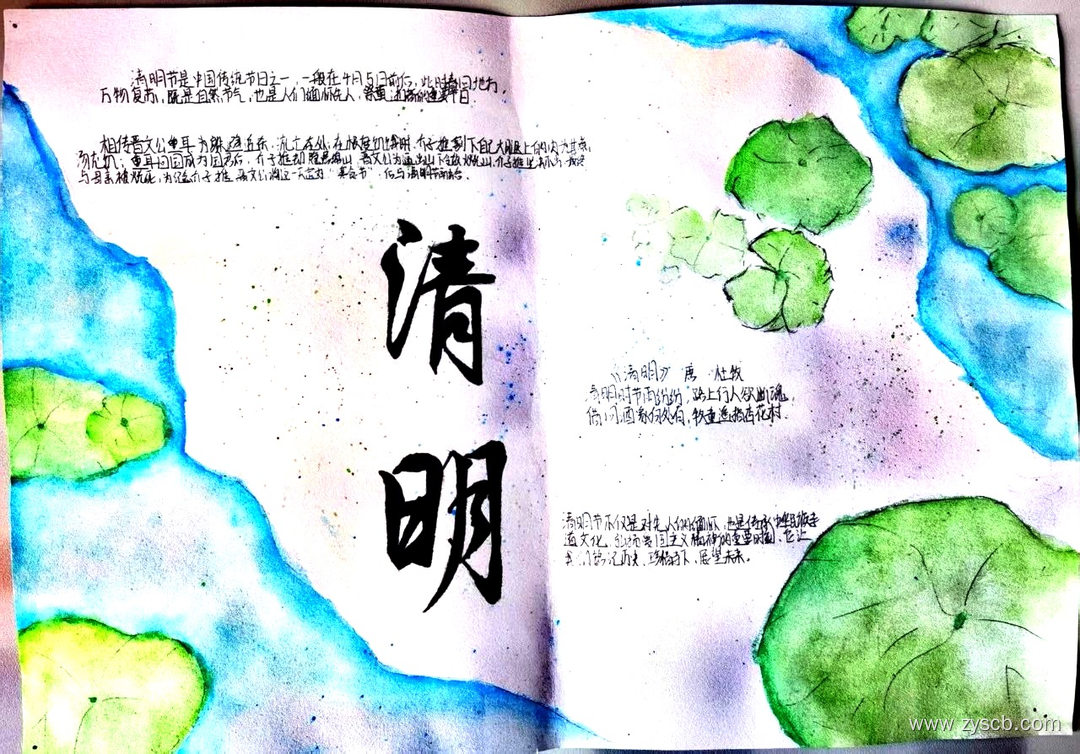 清明节是中国传统节日之一，一般在4月5日前后，此时春回地方，
万物复苏，既是自然节气，也是人们缅怀先人，的重要节日.
相传晋文公重耳为躲避，流亡在外，在时，介子推割下自己大腿上的肉为其
充饥；重耳回国成为国君后，介子推却隐居绵山，晋文公为逼出山下令放火烧山，介子推
与母亲被烧死，为纪念介子推，晋文公这一天定为“寒食节”，后与清明节
清
明
《清明》 唐 杜牧
清明时节雨纷纷，路上行人欲断魂，
借问酒家何处有，牧童遥指杏花村.
清明节不仅是对先人的缅怀，也是传承中华民族孝
道文化，弘扬爱国主义精神的重要时刻，它让
我们铭记历史，珍惜当下，展望未来。
www.zyscb.com